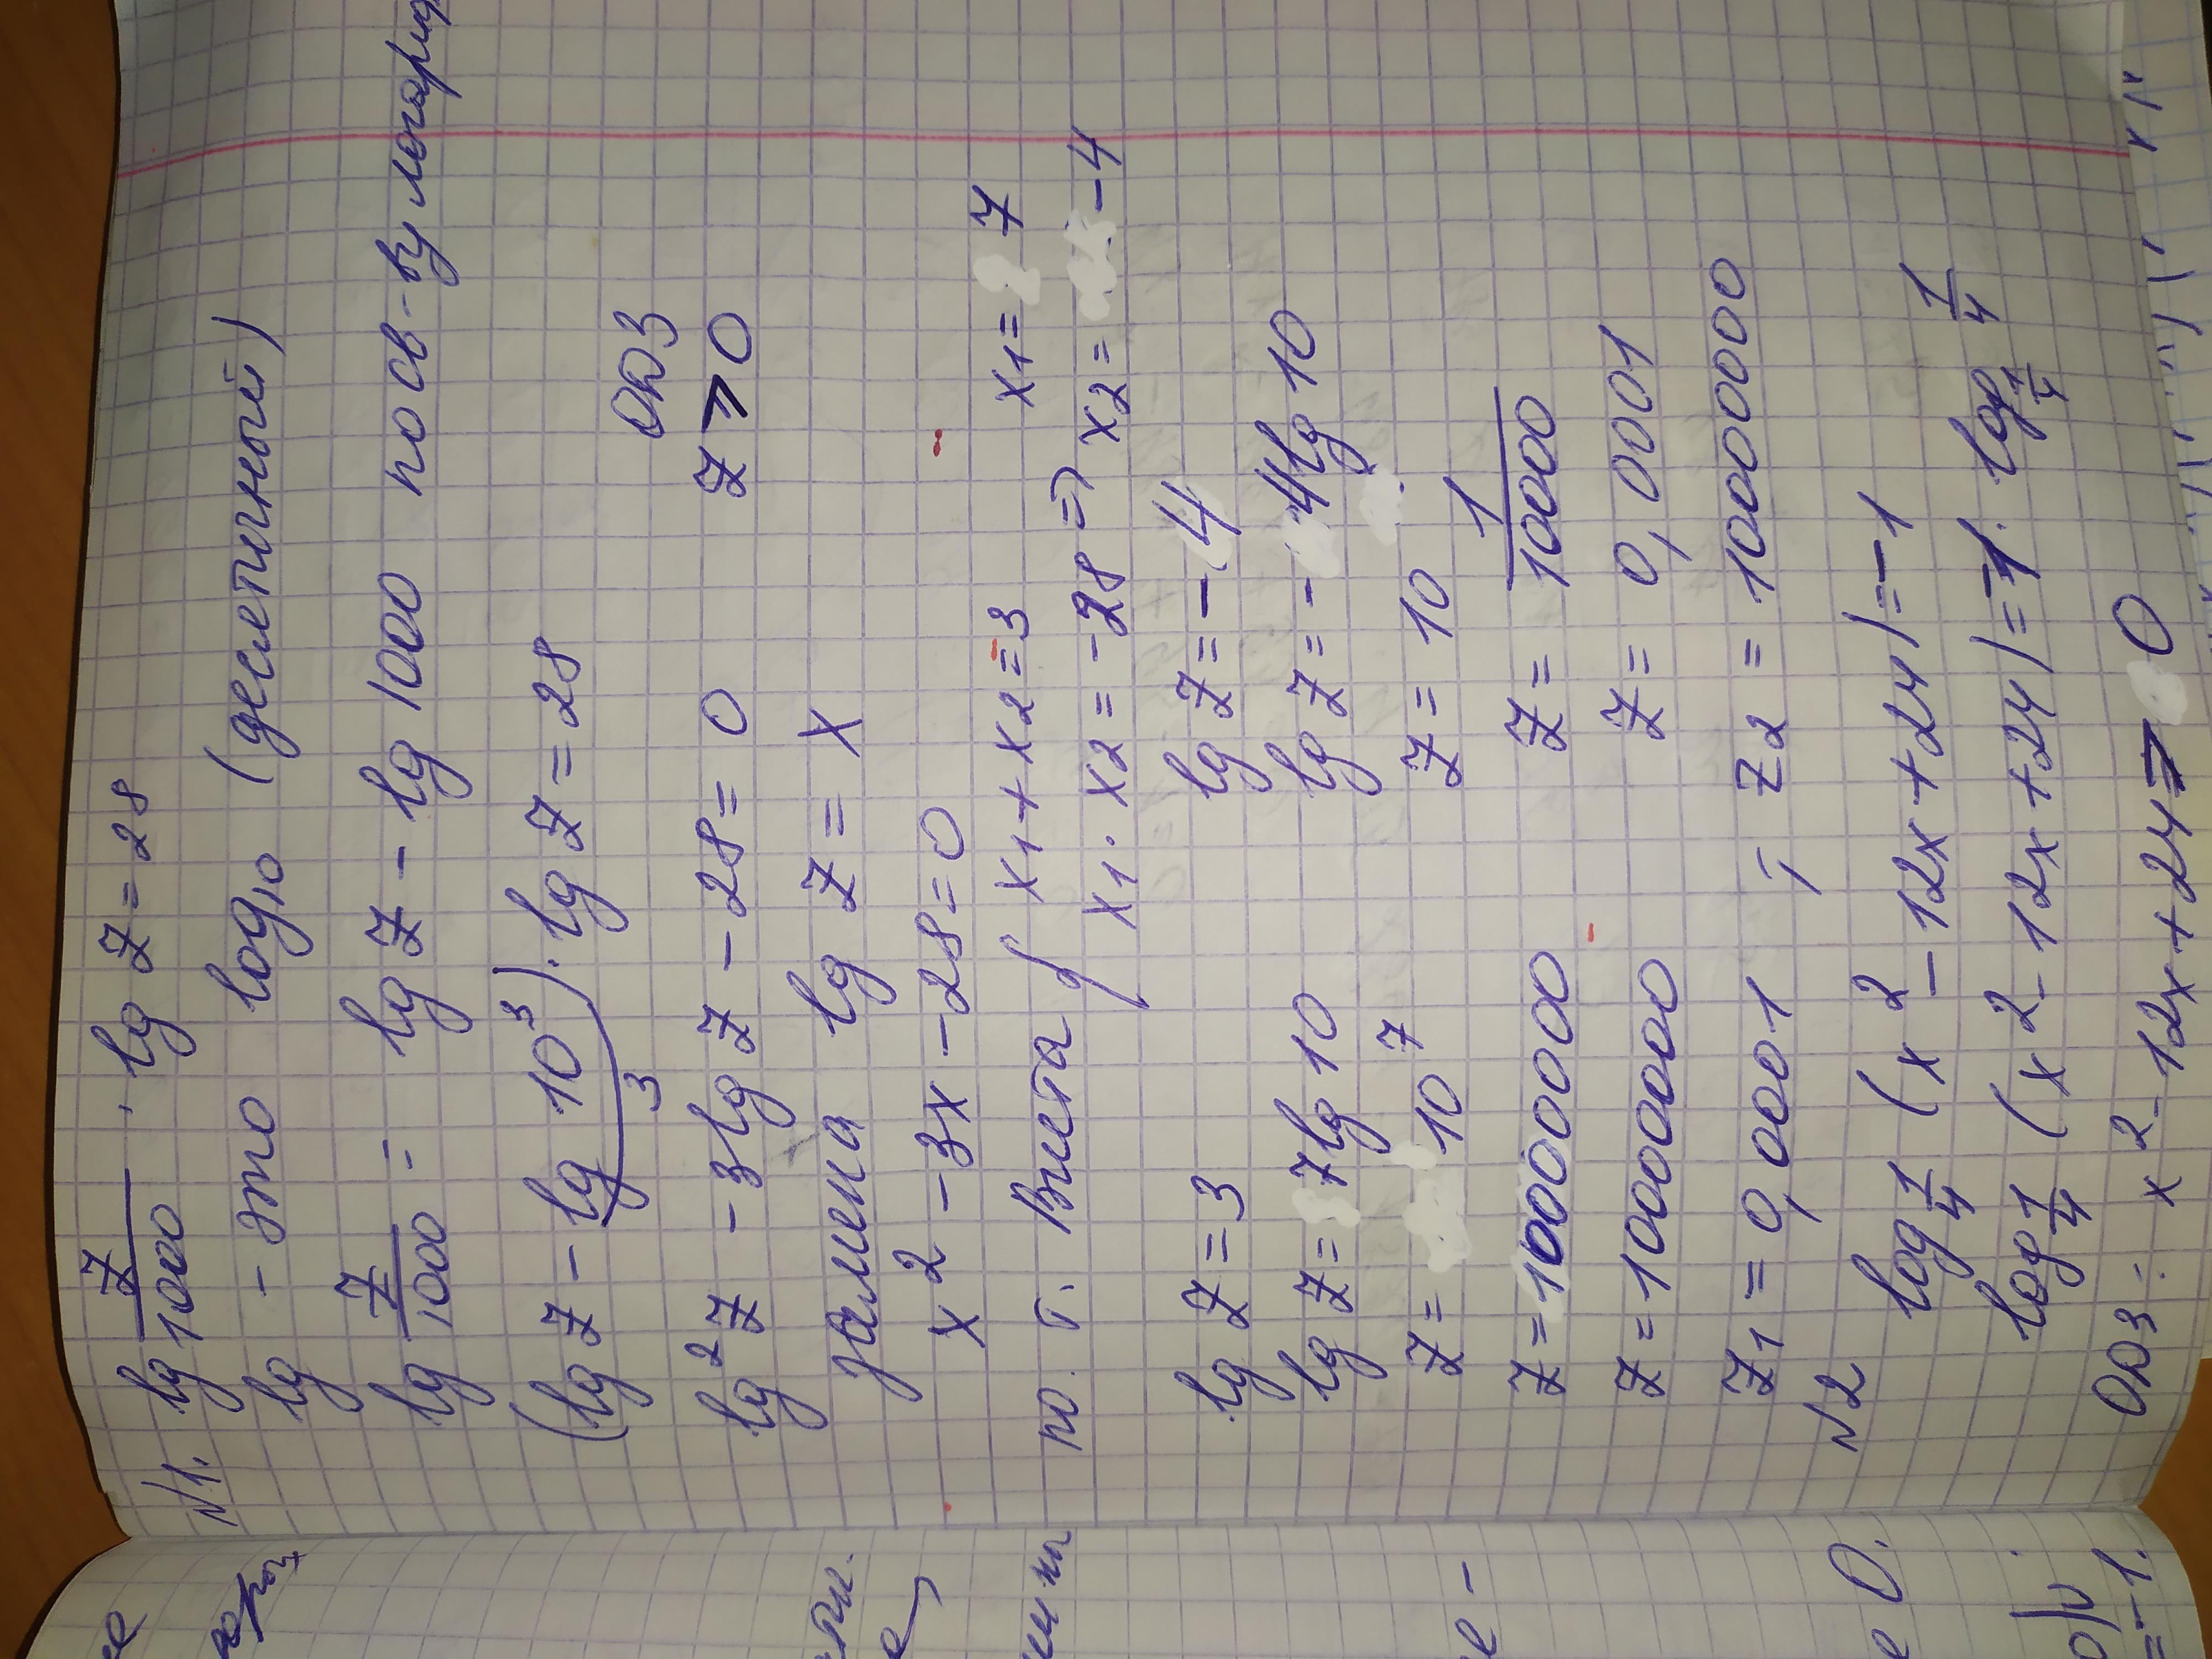 №1. lg z/1000 · lg z = 28
lg - это log₁₀ (десятичный)
lg z/1000 = lg z - lg 1000 по св-ву
(lg z - lg 10³) · lg z = 28
3
ОДЗ
lg² z - 3 lg z - 28 = 0 z > 0
замена lg z = x
x² - 3x - 28 = 0
по т. Виета { x1 + x2 = 3 x1 = 7
x1 · x2 = -28 => x2 = -4
lg z = 3 lg z = -4
lg z = 7 lg 10 lg z = -4 lg 10
z = 10⁷ z = 10
z = 10000000 z = 1/10000
z = 10000000 z = 0,0001
z1 = 0,0001 ; z2 = 10000000
№2 log 1/4 (x² - 12x + 24) = -1
log 1/4 (x² - 12x + 24) = -1 · log 1/4 1/4
ОДЗ: x² - 12x + 24 > 0